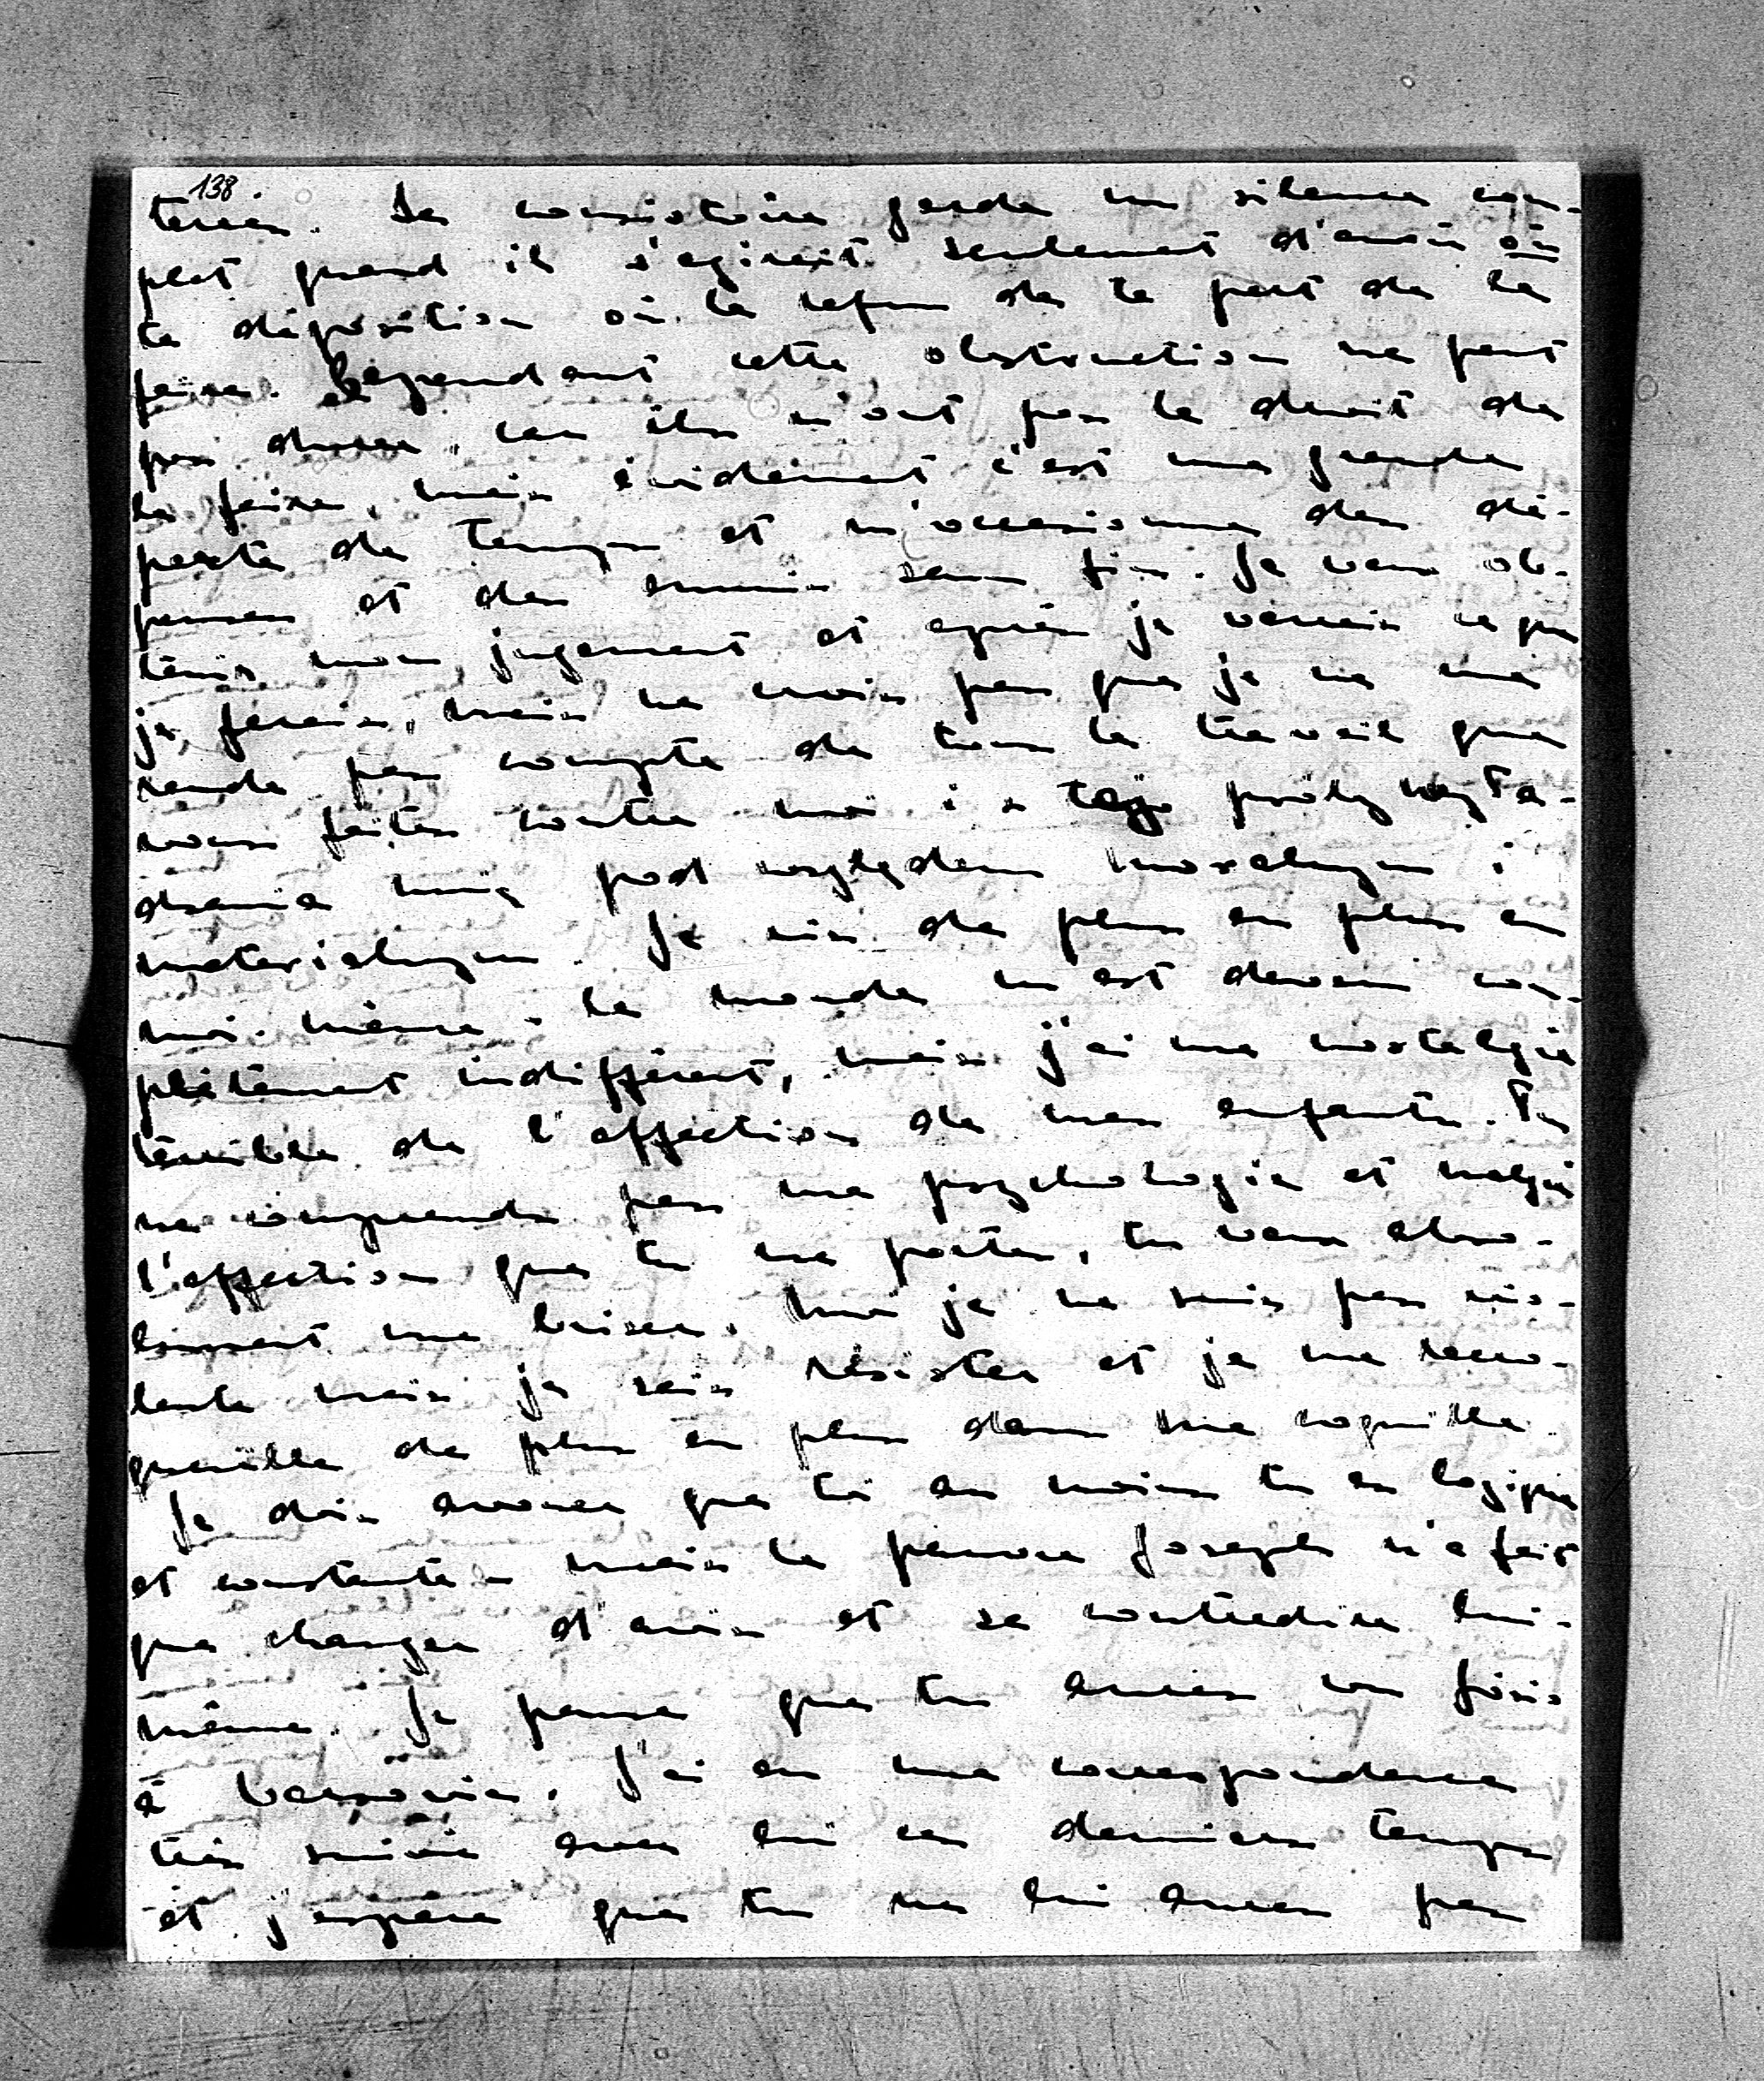 138.
terêts. Le consistoire garde un silence com-
plet quand il s'agirait seulement d'avoir ou
ta déposition ou le refus de ta part de la
faire. Cependant cette obstruction ne peut
pas durer, car ils n'ont pas le droit de
le faire, mais évidement c'est une grande
perte de temps et m'occasionne des dé-
penses et des ennuis sans fin. Je veux ob-
tenir mon jugement et après je verrai ce que
je ferai, mais ne crois pas que je ne me
rende pas compte de tout le travail que
vous faites contre moi i z tego
pod względem moralnym i
materialnym. Je vis de plus en plus en
moi-même - le monde m'est devenu com-
plètement indifférent, mais j'ai une nostalgie
terrible de l'affection de mes enfants. Tu
ne comprends pas ma psychologie et malgré
l'affection que tu me portes, tu veux abso-
lument me briser. Moi je ne suis pas vio-
lente mais je sais résister et je me recro-
queville de plus en plus dans ma coquille.
Je dois avouer que toi au moins tu es logique
et constante - mais le pauvre Joseph n'a fait
que changer d'avis et se contredire lui-
même. Je pense que tu auras
à Varsovie. J'ai eu une correspondance
très suivie avec lui ces derniers temps
et j'espère que tu ne lui auras pas